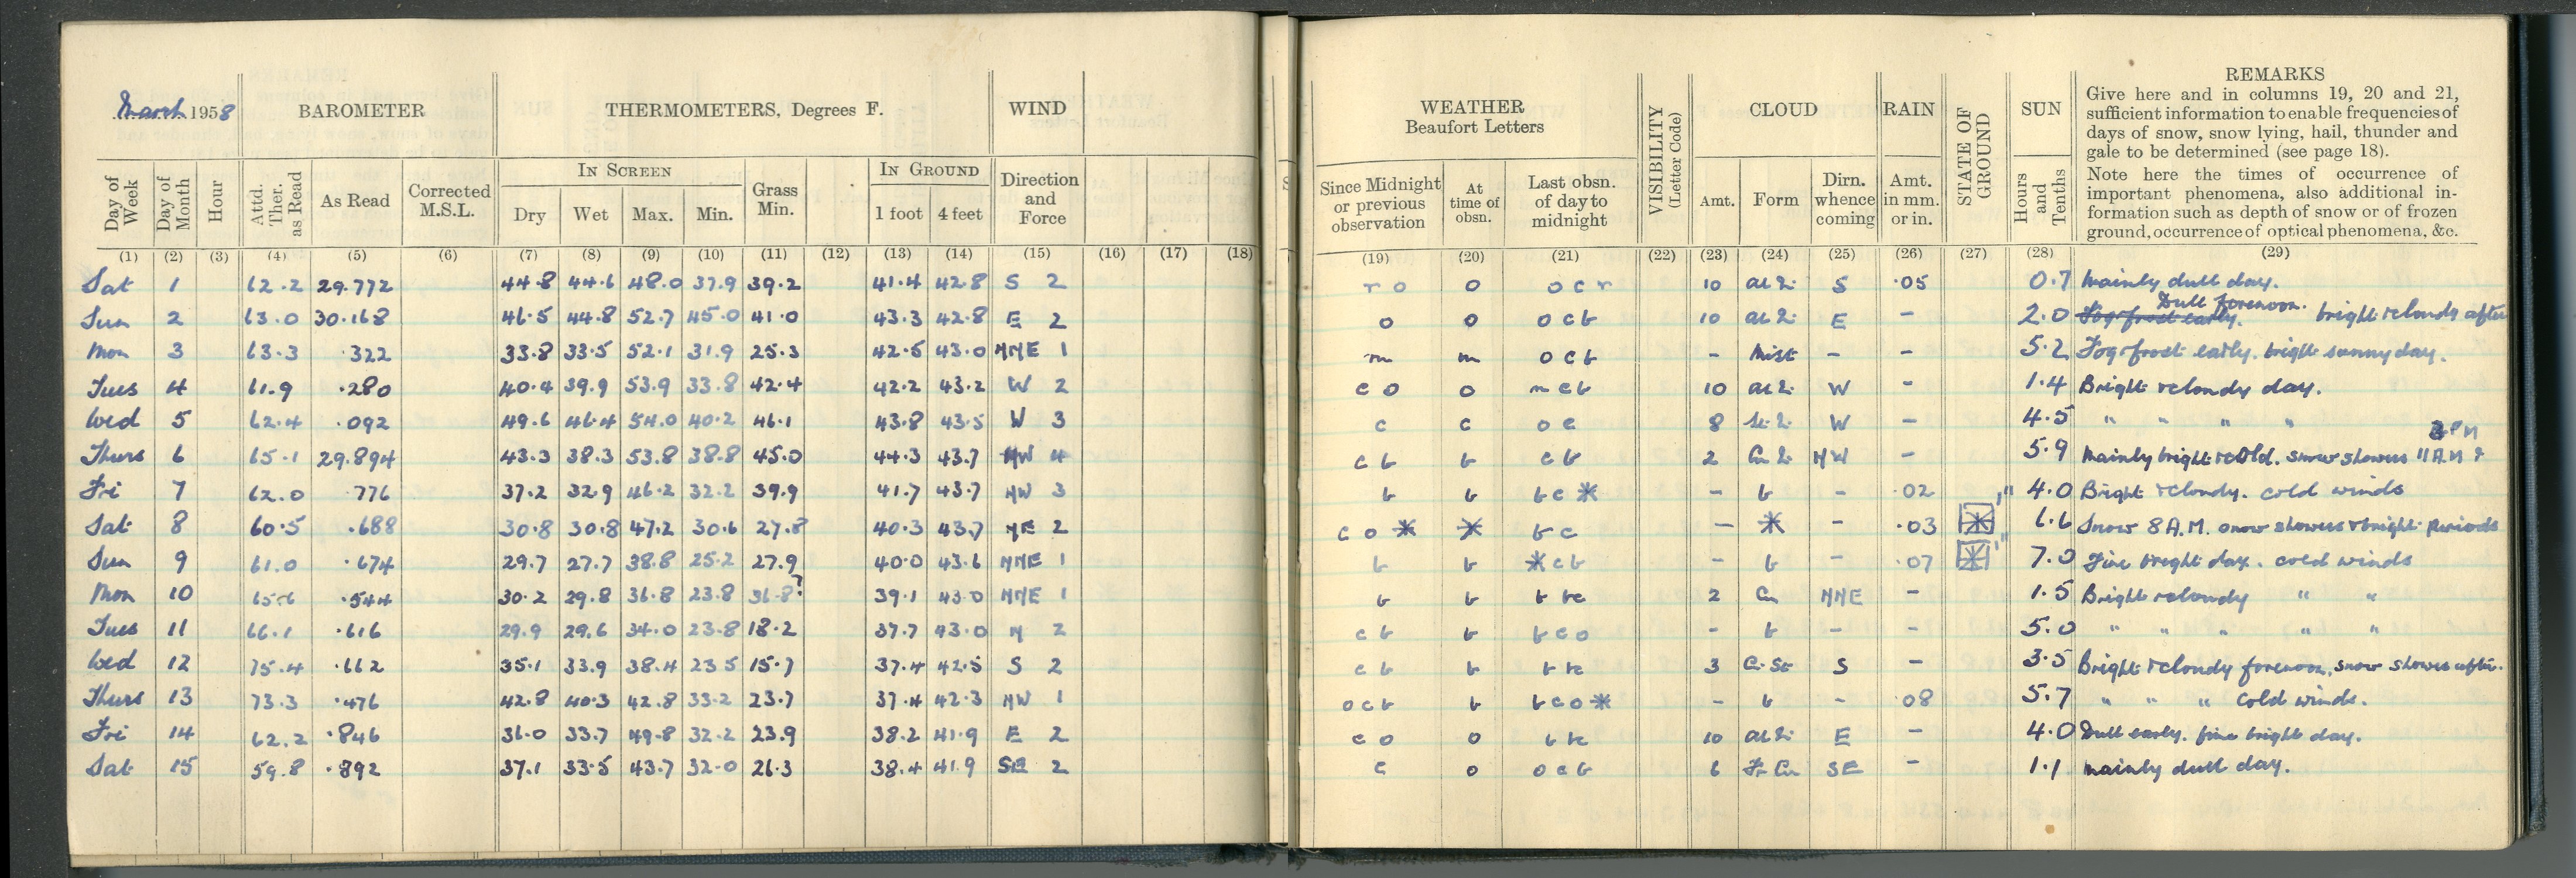 March 1958
BAROMETER
THERMOMETERS, Degrees F.
WIND
Day of Week
Day of Month
Hour
Attd. Ther. as Read
As Read
Corrected M.S.L.
IN SCREEN
Dry Wet Max. Min.
Grass Min.
IN GROUND
1 foot 4 feet
Direction and Force
(1) (2) (3) (4) (5) (6) (7) (8) (9) (10) (11) (12) (13) (14) (15) (16) (17) (18)
Sat 1 62.2 29.772 44.8 44.6 48.0 37.9 39.2 41.4 42.8 S 2
Sun 2 63.0 30.168 46.5 44.8 52.7 45.0 41.0 43.3 42.8 E 2
Mon 3 63.3 .322 33.8 33.5 52.1 31.9 25.3 42.5 43.0 NNE 1
Tues 4 61.9 .280 40.4 39.9 53.9 33.8 42.4 42.2 43.2 W 2
Wed 5 62.4 .092 49.6 46.4 54.0 40.2 46.1 43.8 43.5 W 3
Thurs 6 65.1 29.894 43.3 38.3 53.8 38.8 45.0 44.3 43.7 NW 4
Fri 7 62.0 .776 37.2 32.9 46.2 32.2 39.9 41.7 43.7 NW 3
Sat 8 60.5 .688 30.8 30.8 47.2 30.6 27.8 40.3 43.7 NE 2
Sun 9 61.0 .674 29.7 27.7 38.8 25.2 27.9 40.0 43.6 NNE 1
Mon 10 .544 30.2 29.8 36.8 23.8 36.8? 39.1 43.0 NNE 1
Tues 11 66.1 .616 29.9 29.6 34.0 23.8 18.2 37.7 43.0 N 2
Wed 12 75.4 .662 35.1 33.9 38.4 23.5 15.7 37.4 42.5 S 2
Thurs 13 73.3 .476 42.8 40.3 42.8 33.2 23.7 37.4 42.3 NW 1
Fri 14 62.2 .846 36.0 33.7 49.8 32.2 23.9 38.2 41.9 E 2
Sat 15 59.8 .892 37.1 33.5 43.7 32.0 26.3 38.4 41.9 SE 2
WEATHER
Beaufort Letters
Since Midnight or previous observation
At time of obsn.
Last obsn. of day to midnight
VISIBILITY (Letter Code)
CLOUD
Amt. Form
Dirn. whence coming
RAIN
Amt. in mm. or in.
STATE OF GROUND
SUN
Hours and Tenths
REMARKS
Give here and in columns 19, 20 and 21,
sufficient information to enable frequencies of
days of snow, snow lying, hail, thunder and
gale to be determined (see page 18).
Note here the times of occurrence of
important phenomena, also additional in-
formation such as depth of snow or of frozen
ground, occurrence of optical phenomena, &c.
(19) (20) (21) (22) (23) (24) (25) (26) (27) (28) (29)
r o o o c r 10 S .05 0.7 Mainly dull day.
Dull forenoon.
o o o c b 10 E - 2.0 Fog frost early. bright & cloudy after
m m o c b - Mist - - 5.2 Fog frost early. bright sunny day.
c o o m c b 10 W - 1.4 Bright & cloudy day.
c c o c 8 W - 4.5 " " " "
3 PM
c b b c b 2 NW - 5.9 Mainly bright & cold. snow showers 11 A.M &
b b b c * - b - .02 4.0 Bright & cloudy. cold winds
c o * * b c - * - .03 * 6.6 Snow 8 A.M. snow showers & bright periods
b b * c b - b - .07 * 7.0 Fine bright day. cold winds
b b b c 2 Cu NNE - 1.5 Bright & cloudy " "
c b b b c o - b - - 5.0 " " " " "
c b b b c 3 Ci-St S - 3.5 Bright & cloudy forenoon. snow shower after.
o c b b b c o * - b - .08 5.7 " " " Cold winds.
c o o b c 10 E - 4.0 Dull early. fine bright day.
c o o c b 6 Fr Cu SE - 1.1 Mainly dull day.